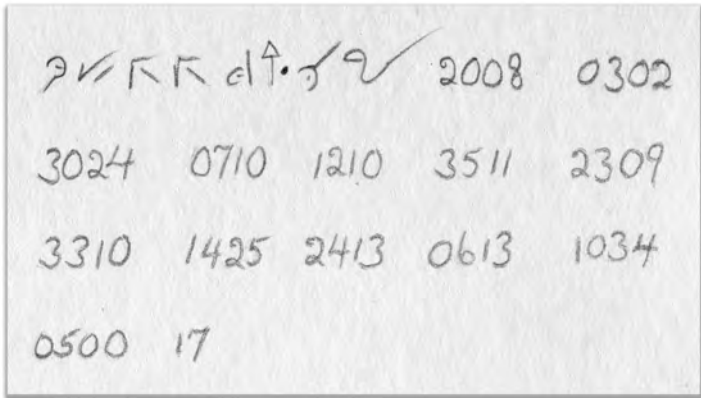 2008 0302
3024 0710 1210 3511 2309
3310 1425 2413 0613 1034
0500 17